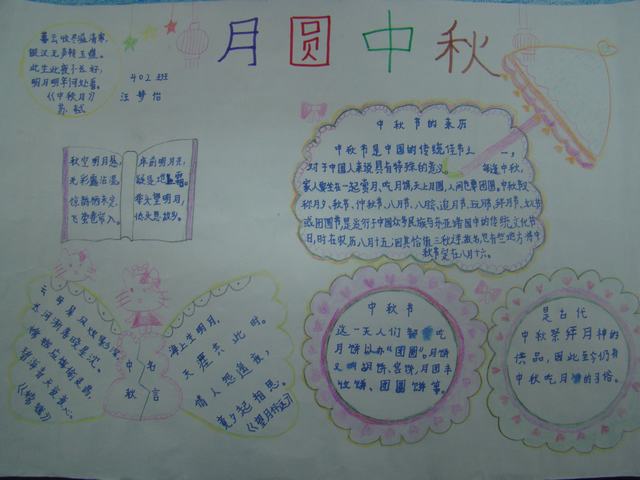 月圆中秋
暮云收尽溢清寒,
银汉无声转玉盘。
此生此夜不长好,
明月明年何处看。
《中秋月》
苏轼
402班
汪梦怡
秋空明月悬,
光彩露沾湿。
惊鹊栖未定,
飞萤卷帘入。
床前明月光,
疑是地上霜。
举头望明月,
低头思故乡。
中秋节的来历
中秋节是中国的传统佳节之一,
对于中国人来说具有特殊的意义。每逢中秋,
家人都坐在一起赏月、吃月饼,天上月圆,人间也要团圆。中秋节又
称月夕、秋节、仲秋节、八月节、八月会、追月节、玩月节、拜月节、女儿节
或团圆节,是流行于中国众多民族与东亚诸国中的传统文化节
日,时在农历八月十五;因其恰值三秋之半,故名,也有些地方将中
秋节定在八月十六。
云母屏风烛影深,
长河渐落晓星沉。
嫦娥应悔偷灵药,
碧海青天夜夜心。
《嫦娥》
中秋
名言
海上生明月,
天涯共此时。
情人怨遥夜,
竟夕起相思。
《望月怀远》
中秋节
这一天人们都吃
月饼以示“团圆”。月饼
又叫胡饼、宫饼、月团、丰
收饼、团圆饼等。
是古代
中秋祭拜月神的
供品,因此至今仍有
中秋吃月饼的习俗。